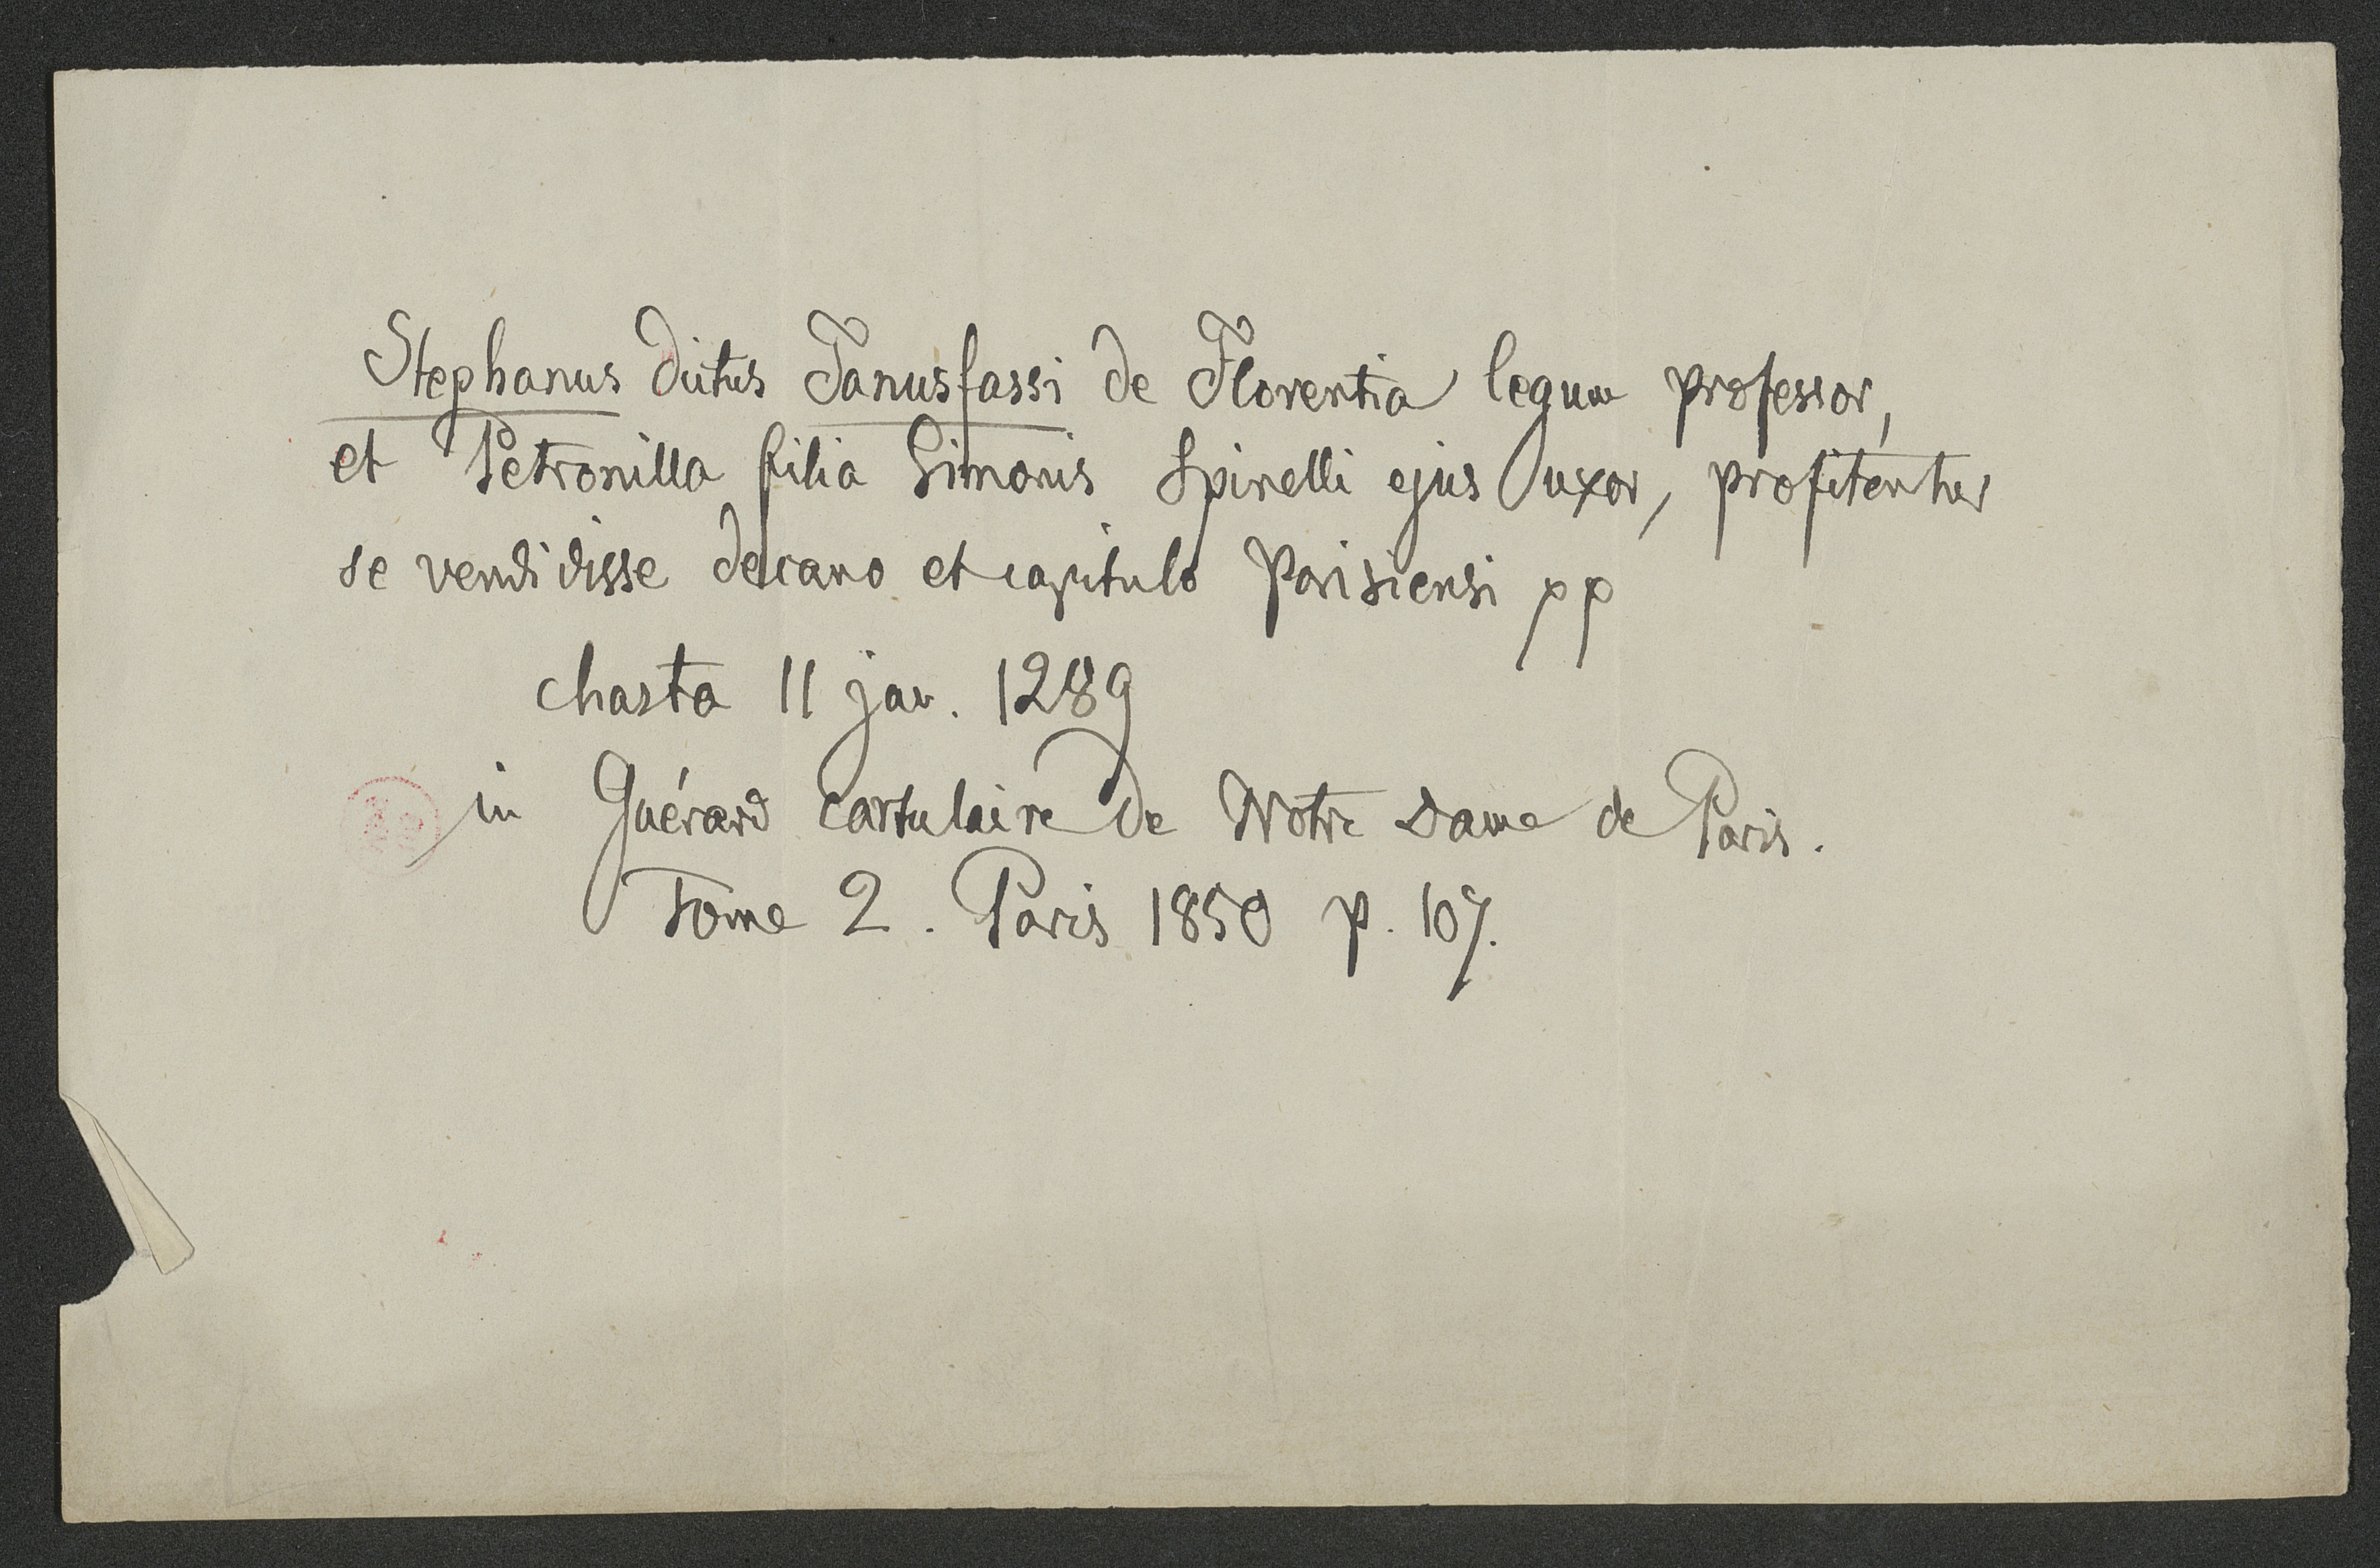 Stephanus dictus Janusfassi de Florentia legum professor,
et Petronilla filia Simonis Spinelli ejus uxor, profitentur
se vendidisse decano et capitulo Parisiensi pp
charta 11 jan. 1289
in Guérard cartulaire de Notre Dame de Paris.
Tome 2. Paris 1850 p. 107.